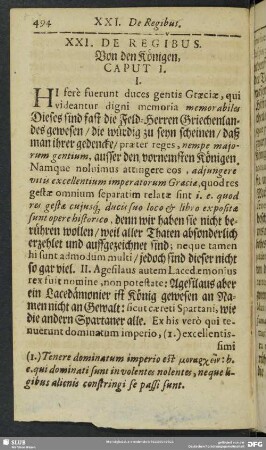 494 XXI. De Regibus.
XXI. DE REGIBUS.
Von den Königen.
CAPUT I.
I.
HI ferè fuerunt duces gentis Græciæ, qui
videantur digni memoria memorabiles
Dieses sind fast die Feld-Herren Griechenlan-
des gewesen / die würdig zu seyn scheinen / daß
man ihrer gedencke / præter reges, nempe majo-
rum gentium, ausser den vornemsten Königen.
Namque noluimus attingere eos, adjungere
vitis excellentium imperatorum Græcia, quod res
gestæ omnium separatim relatæ sint i. e. quod
res gestæ cujusq; ducis suo loco & libro expositæ
sunt opere historico. denn wir haben sie nicht be-
rühren wollen / weil aller Thaten absonderlich
erzehlet und auffgezeichnet sind; neque tamen
hi sunt admodum multi / jedoch sind dieser nicht
so gar viel. II. Agesilaus autem Lacedæmonius
rex fuit nomine, non potestate: Agesilaus aber
ein Lacedämonier ist König gewesen an Na-
men nicht an Gewalt: sicut cæteri Spartani, wie
die andern Spartaner alle. Ex his verò qui te-
nuerunt dominatum imperio, (1.) excellentis-
simi
(1.) Tenere dominatum imperio est h.
e. qui dominati sunt in volentes nolentes, neque le-
gibus alienis constringi se passi sunt.
SLUB
DFG